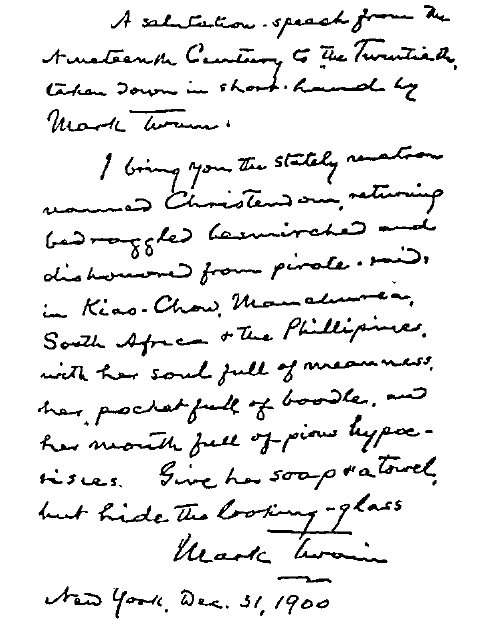 A salutation-speech from the
Nineteenth Century to the Twentieth,
taken down in short-hand by
Mark Twain:
I bring you the stately matron
named Christendom, returning
bedraggled besmirched and
dishonored from pirate-raids
in Kiao-Chow, Manchuria,
South Africa & the Phillipines,
with her soul full of meanness,
her pocket full of boodle, and
her mouth full of pious hypoc-
risies. Give her soap & a towel,
but hide the looking-glass
Mark Twain
New York, Dec. 31, 1900